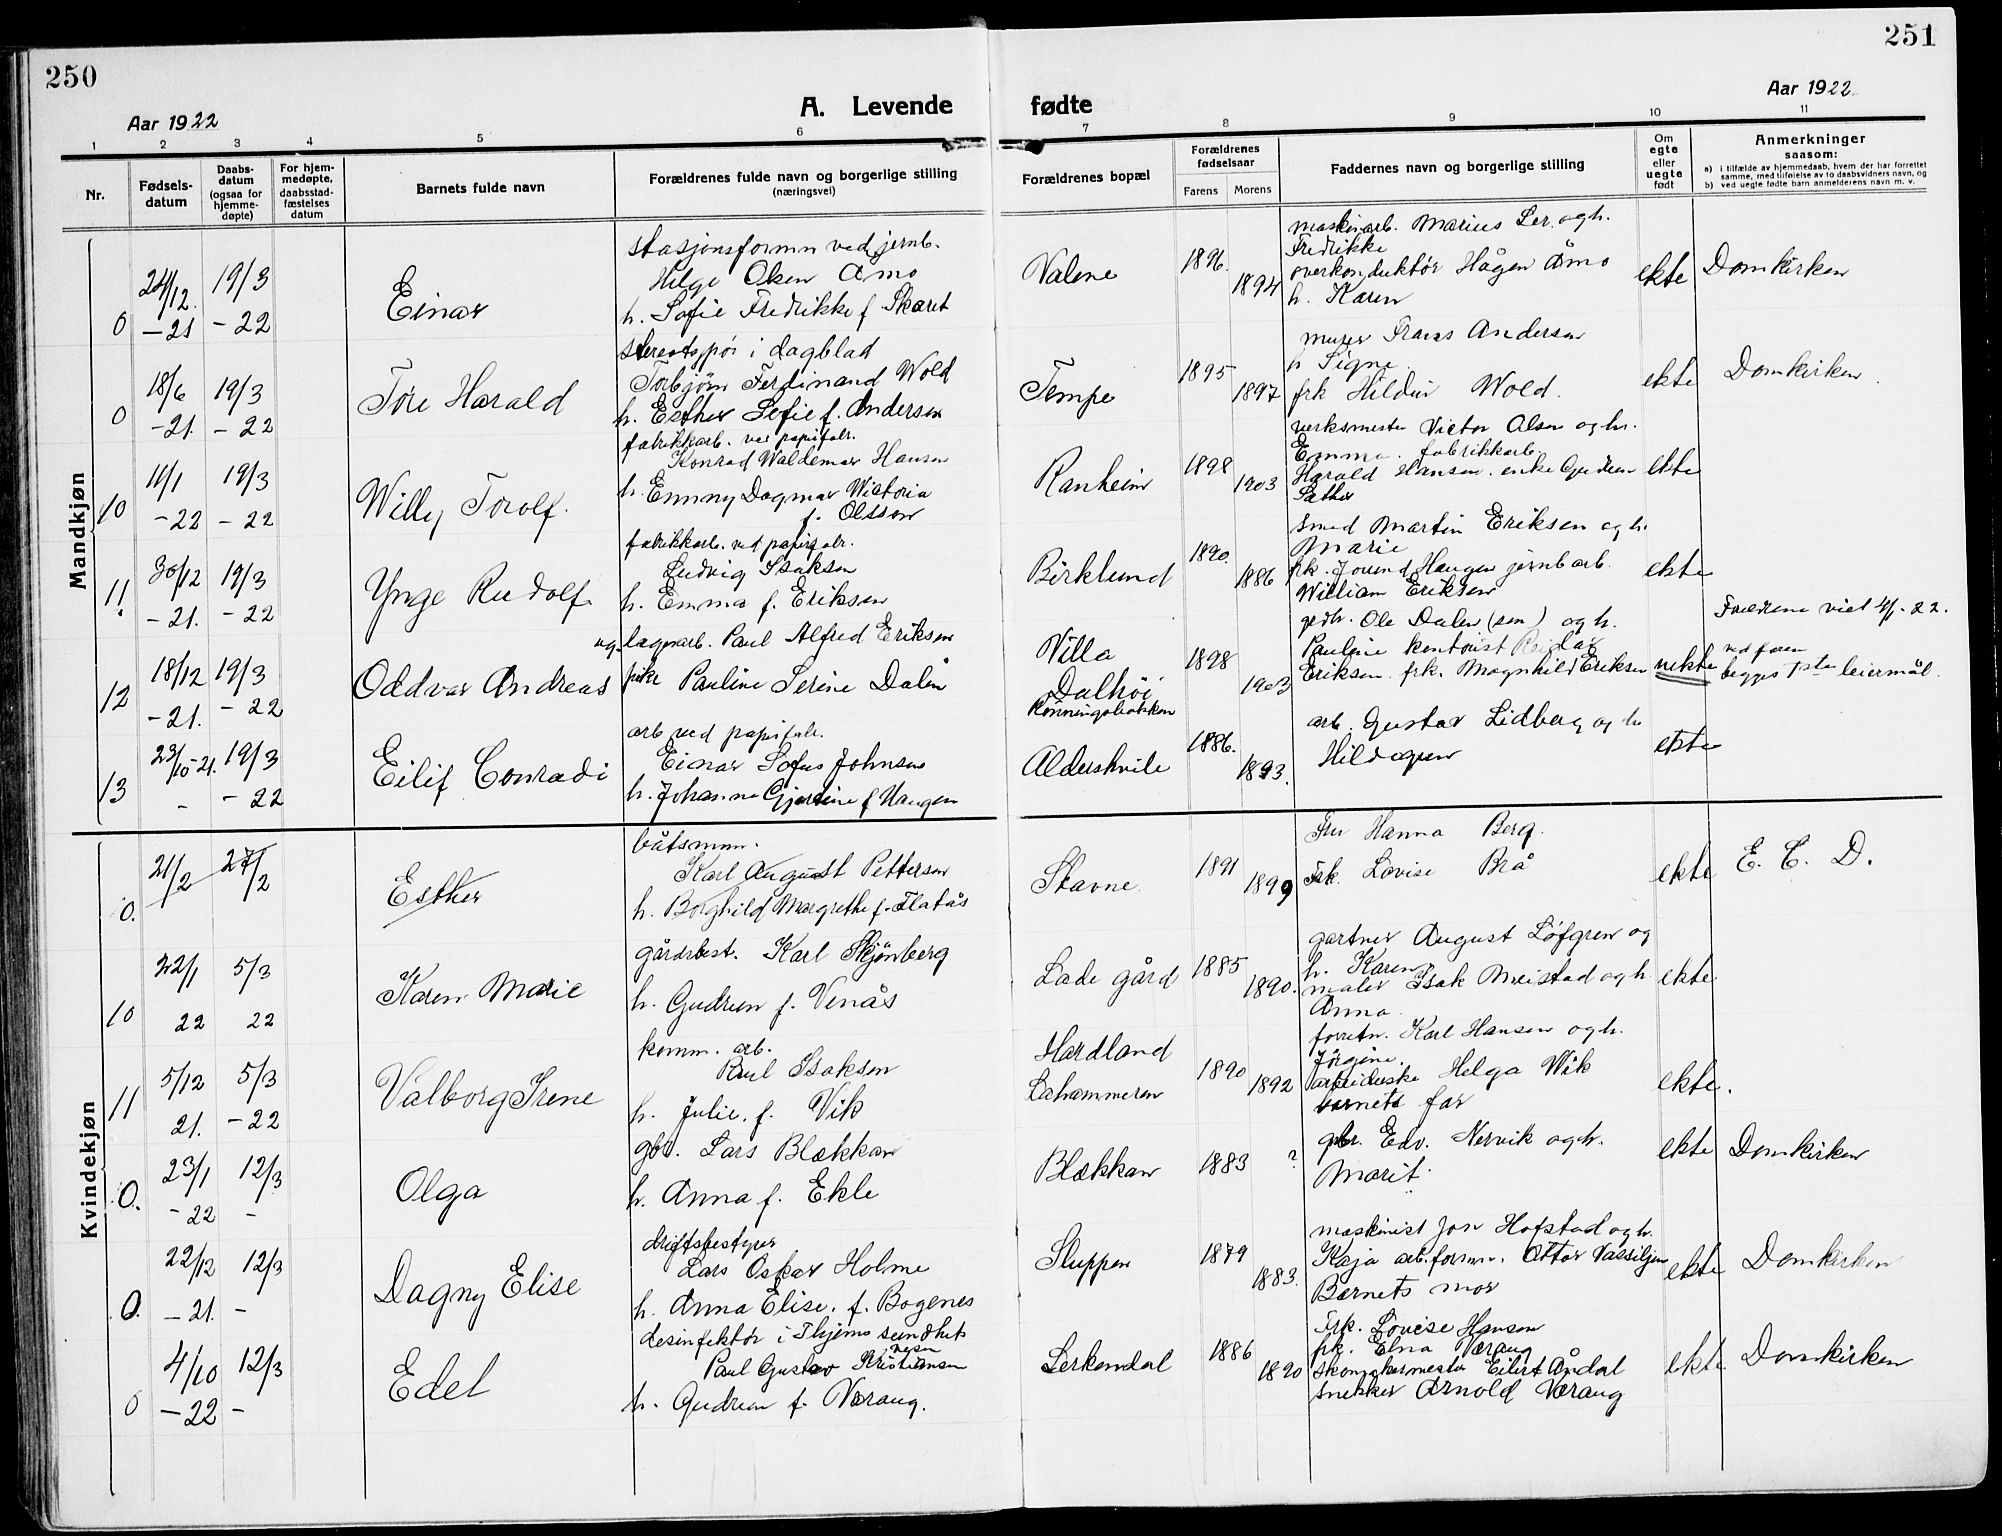 250
251
Aar 1922
A. Levende fødte
Aar 1922
1 2 3 4 5 6 7 8 9 10 11
Nr.
Fødsels-
datum
Daabs-
datum
(ogsaa for
hjemme-
døpte)
For hjem-
medøpte,
daabsstad-
fæstelses
datum
Barnets fulde navn
Forældrenes fulde navn og borgerlige stilling
(næringsvei)
Forældrenes bopæl
Forældrenes
fødselsaar
Farens Morens
Faddernes navn og borgerlige stilling
Om
egte
eller
uegte
født
Anmerkninger
saasom:
a) i tilfælde av hjemmedaab, hvem der har forrettet
samme, med tilføielse av to daabsvidners navn, og
b) ved uegte fødte barn anmelderens navn m. v.
Mandkjøn
0
24/12.
-21
19/3
-22
Einar
stasjonsformn ved jernb.
Helge Olsen Åmo
h. Sofie Fredrikke f Skaret
Valene
1896.
1894
maskinarb. Marius Ler. og h.
Fredrikke
overkonduktør Hågen Åmo
h. Karen
ekte
Domkirken
0
18/6
-21.
19/3
-22
Tore Harald
stereotypør i dagblad
Torbjörn Ferdinand Wold
h. Esther Sofie f. Andersen
Tempe
1895
1897
murer Frans Andersen
h Signe
frk Hildur Wold.
ekte
Domkirken
10
11/1
-22
19/3
-22
Willy Torolf.
fabrikkarb. ved papirfabr.
Konrad Waldemar Hansen
h. Emmy Dagmar Wictoria
f. Olsson
Ranheim
1898
1903
verksmester Victor Olsen og hr.
Emma. fabrikkarb.
Harald Hansen. enke Gudrun
Sæther
ekte
11.
30/12
-21.
19/3
-22
Ynge Rudolf
fabrikkarb. ved papirfabr.
Ludvig Isaksen
h. Emma f. Eriksen
Birklund
1890.
1886
smed Martin Eriksen og h.
Marie
frk. Jorund Haugen jernb arb.
William Eriksen
ekte
12
18/12
-21.
19/3
-22
Oddvar Andreas
ug. lagerarb. Paul Alfred Eriksen
pike Pauline Serine Dalen
Villa
Dalhöi
Rönningsbakken
1898
1903
gedr. Ole Dalen (sen) og h.
Pauline kontorist Reidar
Eriksen. frk. Magnhild Eriksen
uekte
Foreldrene viet 4/1-22.
ved faren
begges 1ste leiermål.
13
23/10-21.
-
19/3
-22
Eilif Conradi
arb ved papirfabr.
Einar Sofus Johnsen
h. Johanne Gjertine f Haugen
Alderskvile
1886.
1893.
arb. Gustav Lidberg og h
Hildagun
ekte
Kvindekjøn
0.
21/2
27/2
Esther
båtsmm.
Karl August Petterson
h. Borghild Margrethe f. Flatås
Stavne.
1891
1899
Fru Hanna Berg.
Frk. Lovise Brå
ekte
E. C. D.
10
22/1
22
5/3
22
Karen Marie
gårdsbest. Karl Skjönberg
h. Gudrun f. Venås
Lade gård
1885
1890.
gartner August Löfgren og
h. Karen
maler Isak Meistad og h
Anna.
ekte
11
5/12
21.
5/3
-22
Valborg Irene
komm. arb.
Paul Isaksen
h. Julie. f. Vik
Hardland
Lahammeren
1890
1892
forretn. Karl Hansen og h.
Jörgine.
arbeiderske Helga Wik
barnets far
ekte.
0.
23/1
-22
12/3
-
Olga
gbr. Lars Blekkan
h. Anna f. Ekle
Blekkan
1883
?
gbr. Edv. Nervik og h.
Marit.
ekte
Domkirken
0.
22/12
-21.
12/3
-
Dagny Elise
driftsbestyrer
Lars Oskar Holme
h. Anna Elise. f. Bogenes
Sluppen
1879
1883.
maskinist Jon Hofstad og h.
Kaja arb.formn. Ottar Vassiljen
Barnets mor
ekte
Domkirken
0
4/10
-22
12/3
-
Edel
desinfektör i Thjems sundhets
vesen
Paul Gustav Kristiansen
h. Gudrun f. Væraug.
Lerkendal
1886
1890
Frk. Lovise Hansen
frk. Elna Værang
skomakermester Eilert Åndal
snekker Arnold Værang
ekte
Domkirken